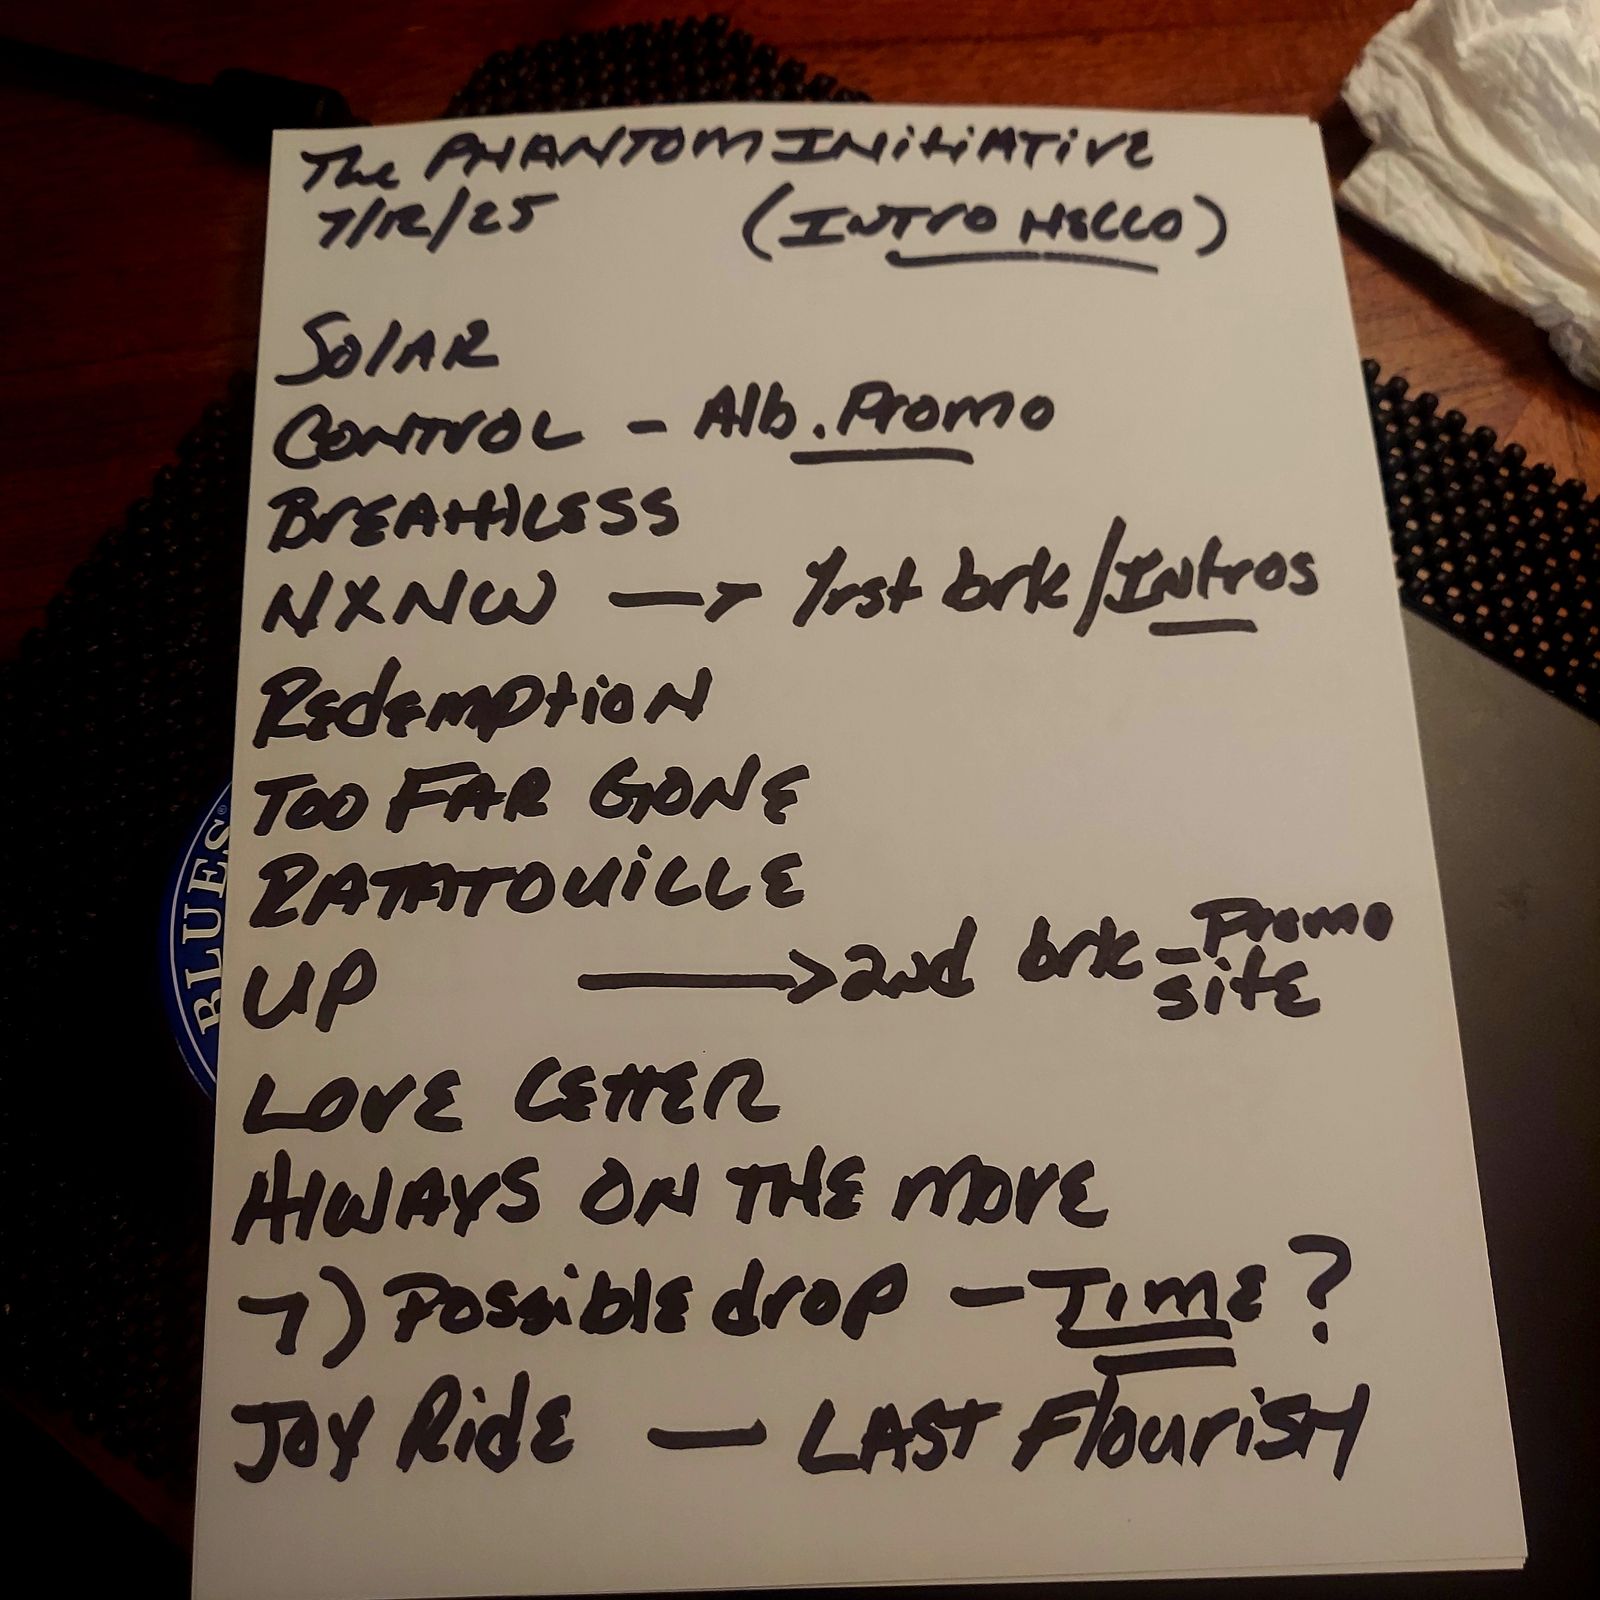 The PHANTOM INitiATive
7/12/25 (INTRO HELLO)
SOLAR
CONTROL - Alb. Promo
BREATHLESS
NXNW → 1rst brk/INtros
Redemption
TOO FAR GONE
RATATOUILLE
UP → 2nd brk - Promo
site
LOVE LETTER
AlWAYS ON THE MOVE
7) Possible drop - TIME?
JOY RidE - LAST FlouriSH
BLUES®